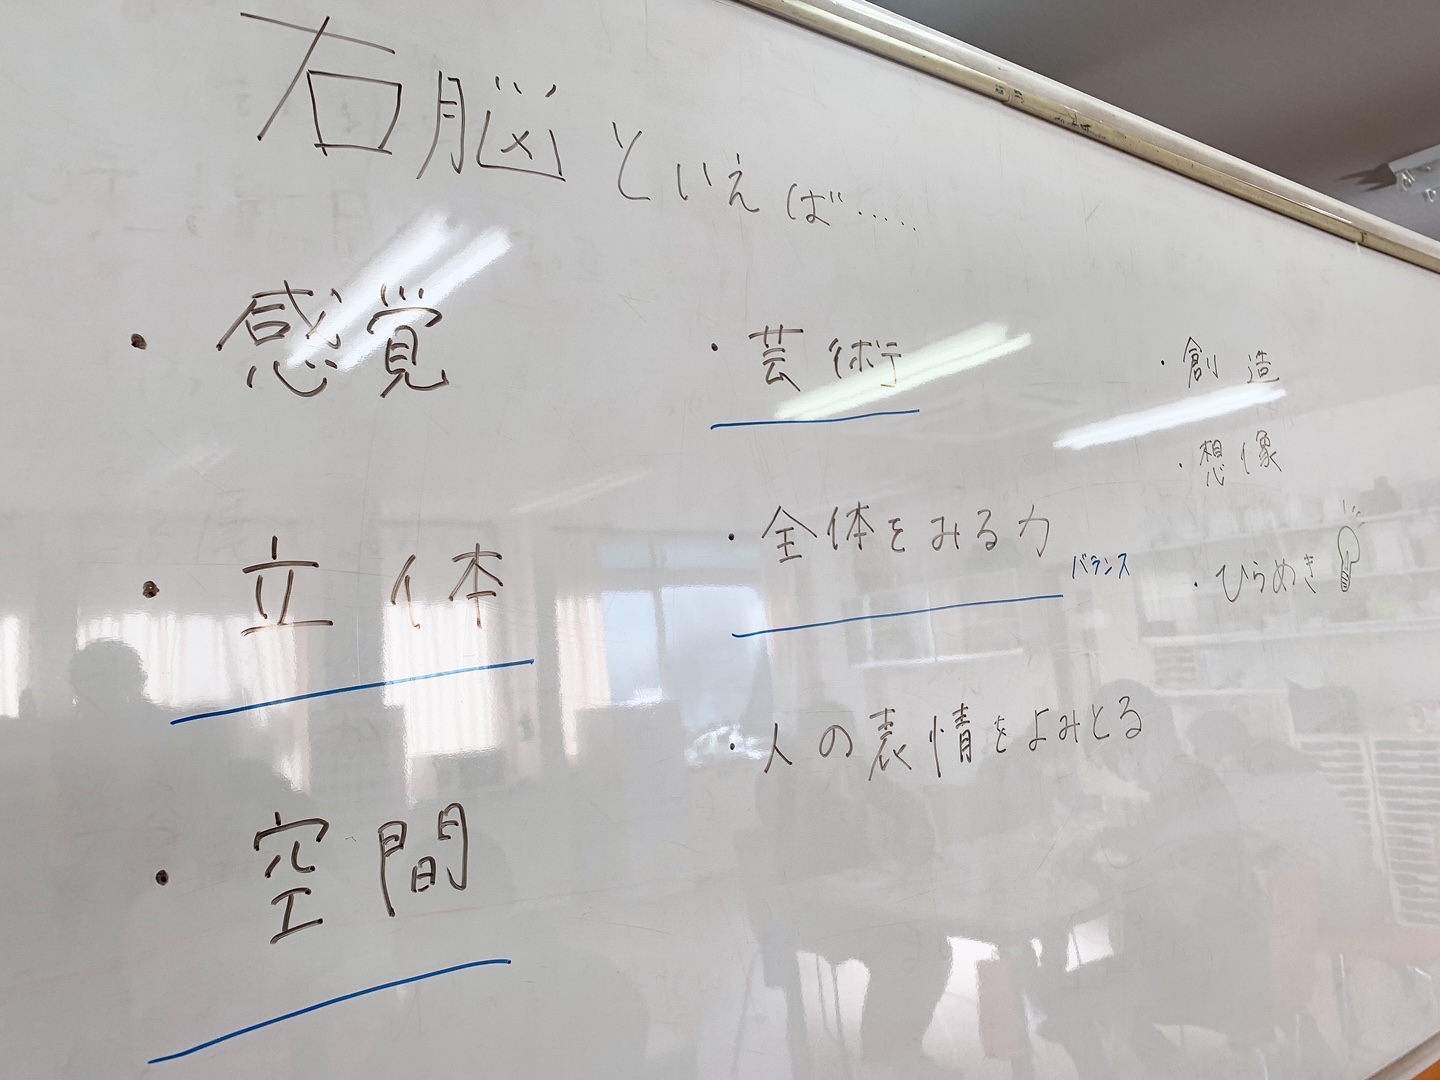 右脳といえば……
・感覚
・立体
・空間
・芸術
・全体をみる力
バランス
・人の表情をよみとる
・創造
・想像
・ひらめき